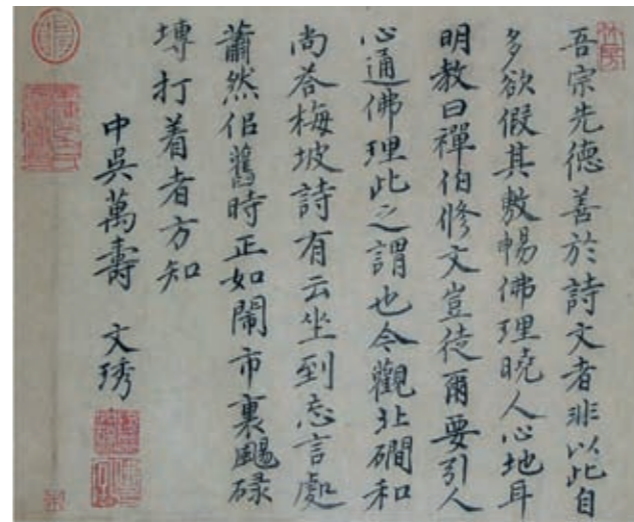 吾宗先德善於詩文者非以此自
多欲假其敷暢佛理曉人心地耳
明教曰禪伯修文豈徒爾要引人
心通佛理此之謂也令觀北磵和
尚荅梅坡詩有云坐到忘言處
蕭然侣舊時正如鬧市裏颺碌
塼打着者方知
中吳萬壽 文琇